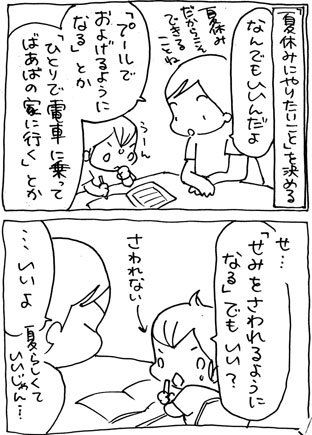 「夏休みにやりたいこと」を決める
なんでもいいんだよ
夏休み
だからこそ
できること
ね
「プールで
およげるように
なる」とか
「ひとりで電車に乗って
ばあばの家に行く」とか
うーん
せ…
「せみをさわれるように
なる」でもいい？
さわれない
…いいよ
夏らしくて
いいじゃん…